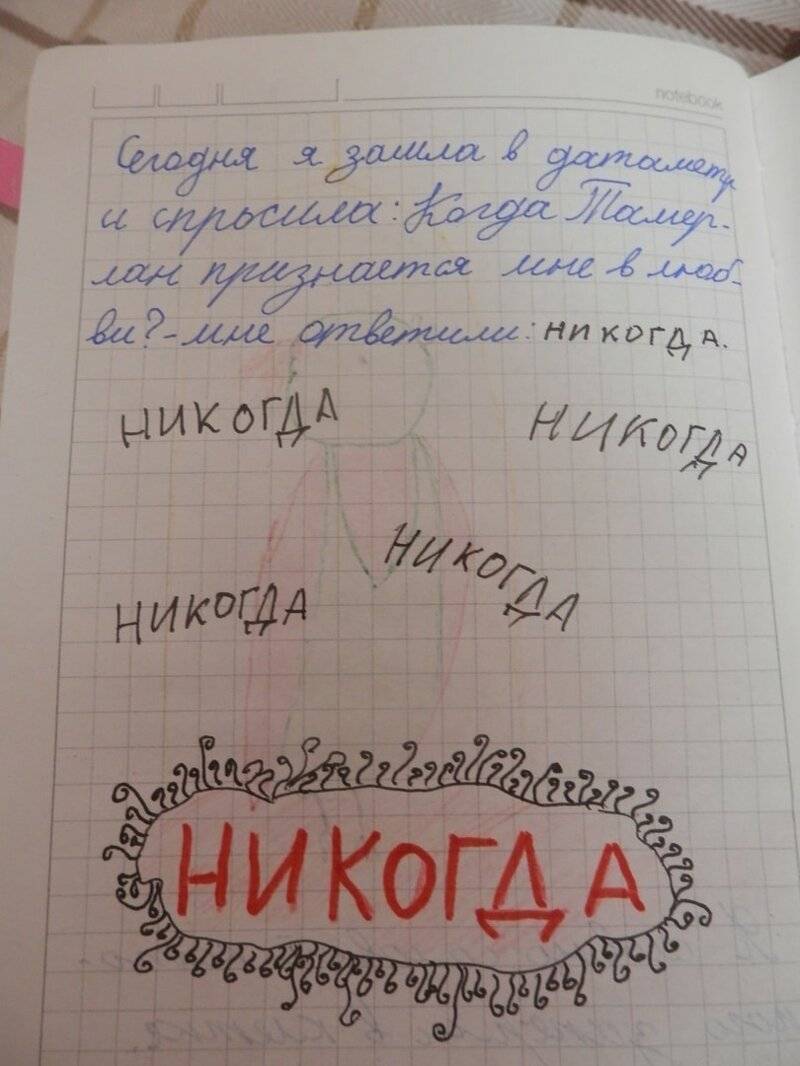 notebook
Сегодня я зашла в датаметр
и спросила: Когда Тамер-
лан признается мне в люб-
ви? - мне ответили: НИКОГДА.
НИКОГДА
НИКОГДА
НИКОГДА
НИКОГДА
НИКОГДА